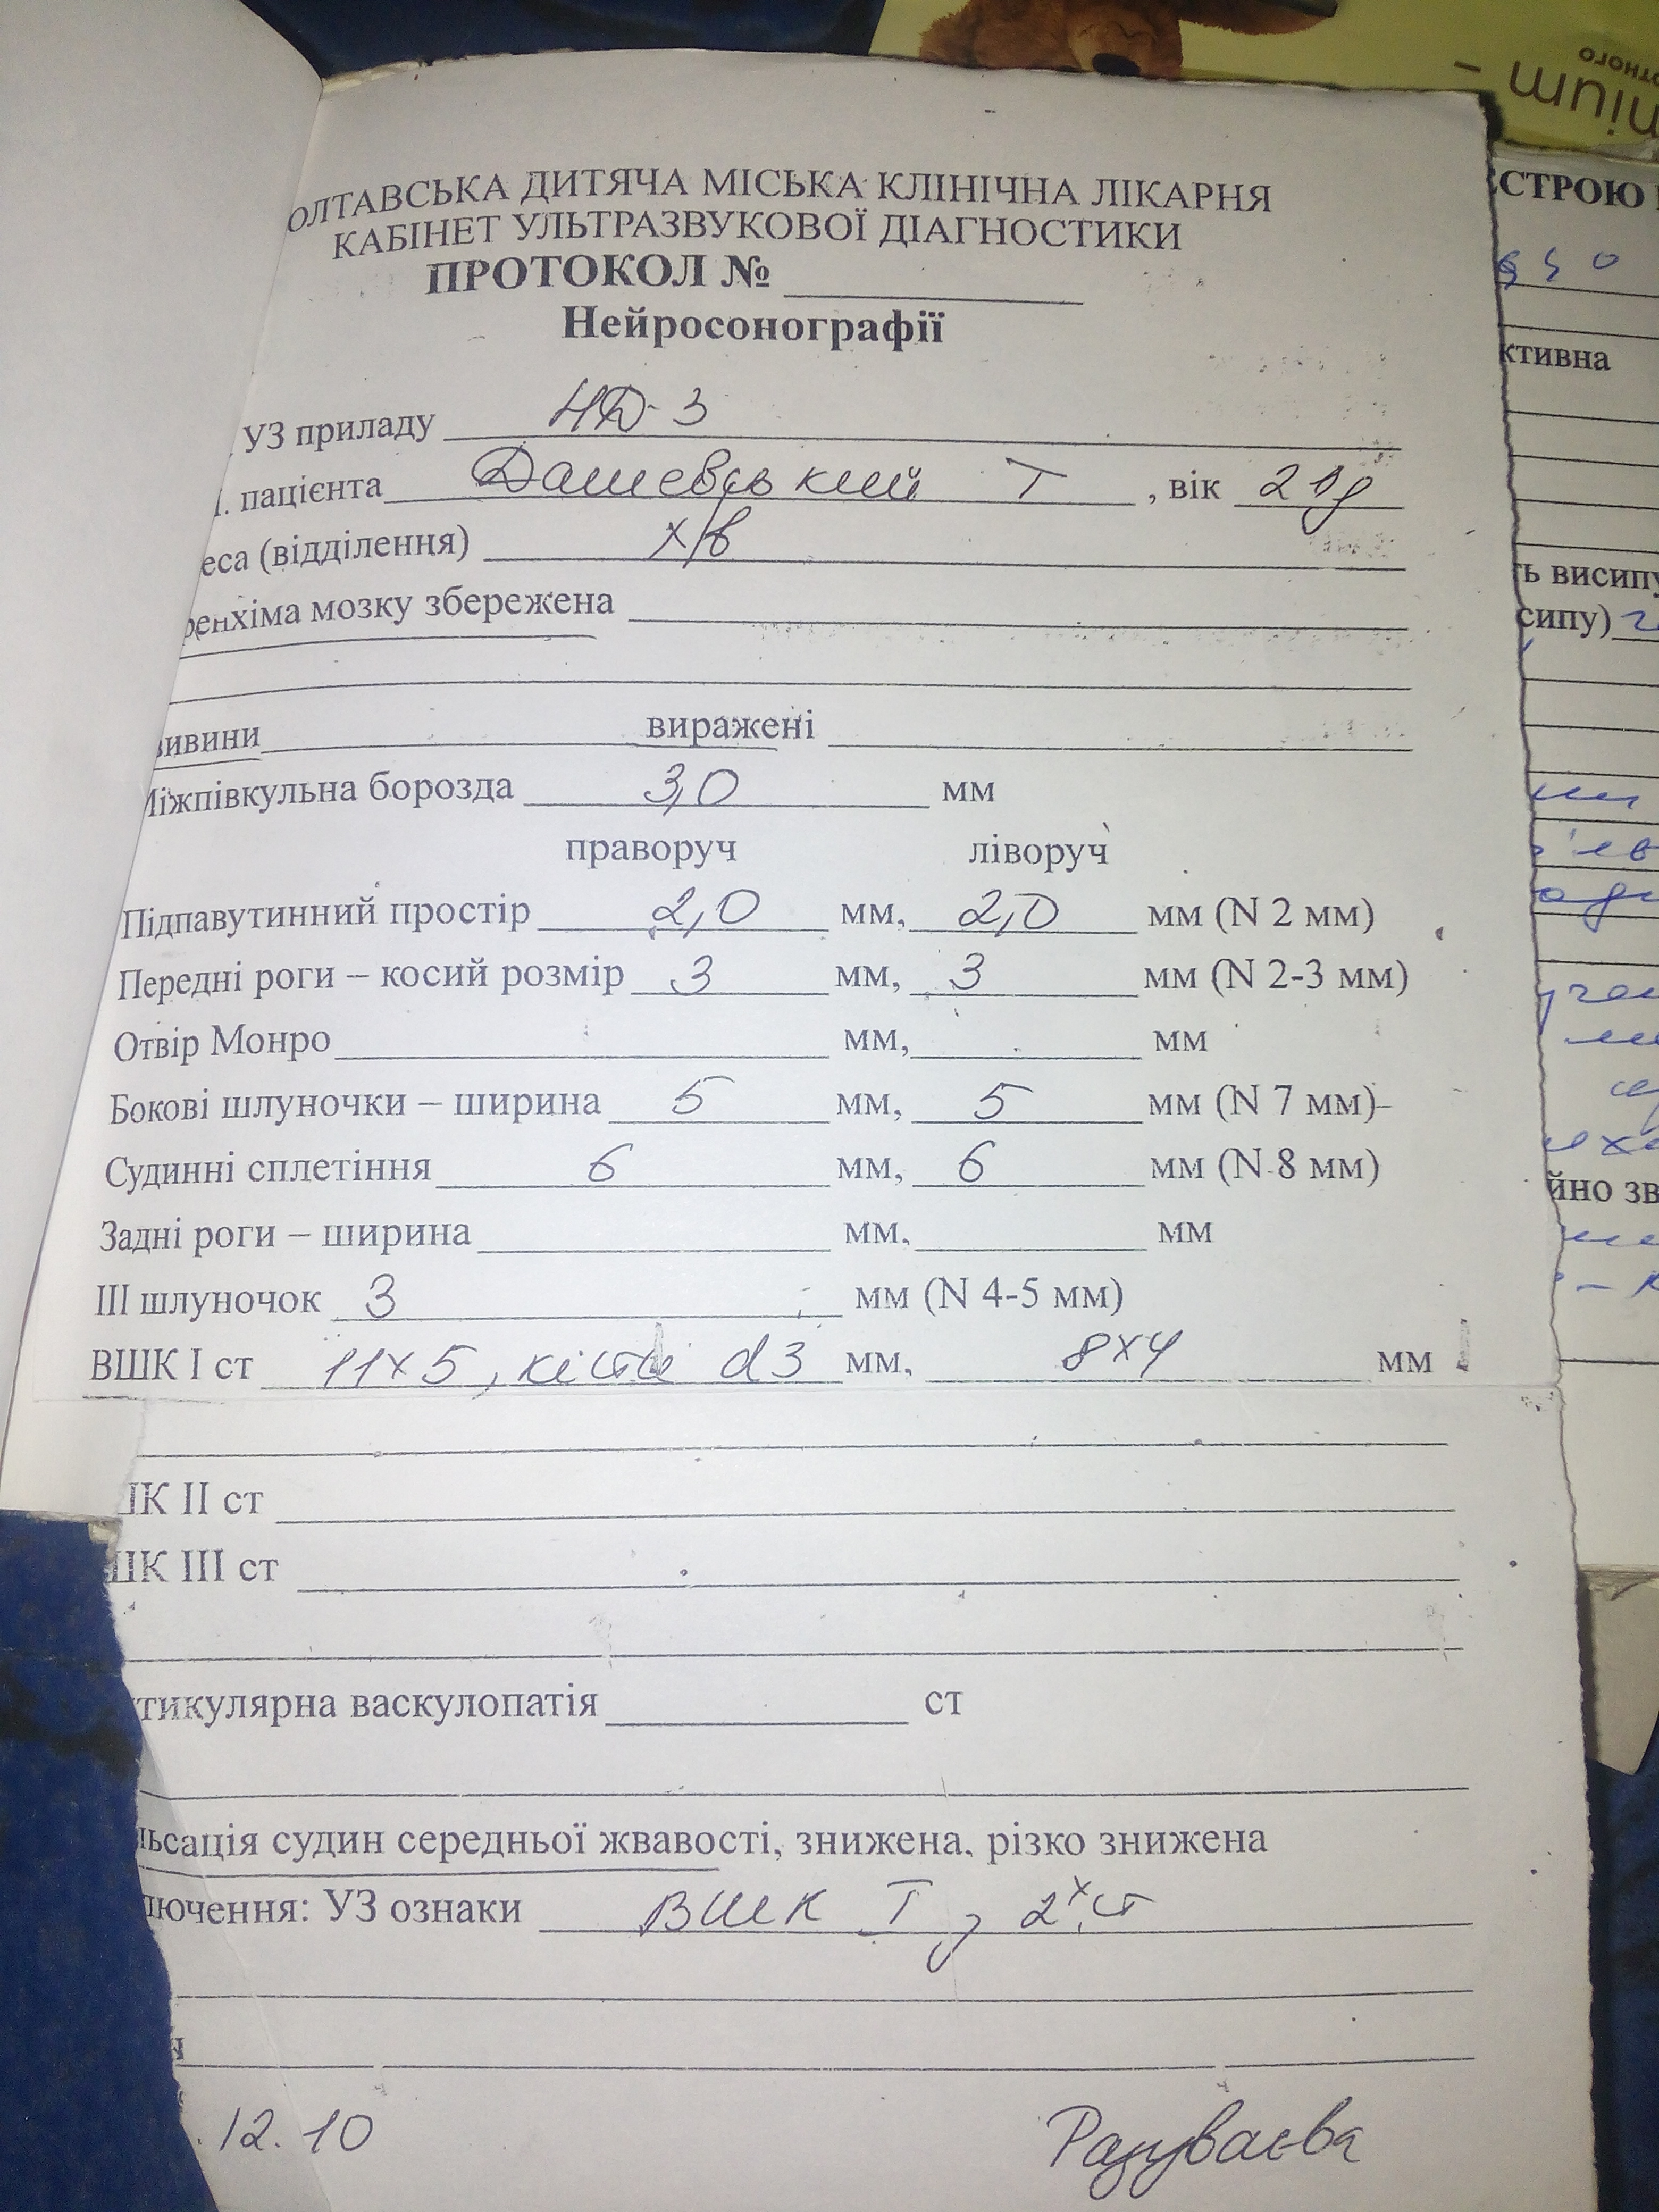 nium -
отного
ОЛТАВСЬКА ДИТЯЧА МІСЬКА КЛІНІЧНА ЛІКАРНЯ
КАБІНЕТ УЛЬТРАЗВУКОВОЇ ДІАГНОСТИКИ
ПРОТОКОЛ № ____
Нейросонографії
УЗ приладу HD-3
. пацієнта Дашевський Т , вік
еса (відділення) х/в
ренхіма мозку збережена
вивини виражені
Міжпівкульна борозда 3,0 мм
праворуч ліворуч
Підпавутинний простір 2,0 мм, 2,0 мм (N 2 мм)
Передні роги – косий розмір 3 мм, 3 мм (N 2-3 мм)
Отвір Монро мм, мм
Бокові шлуночки – ширина 5 мм, 5 мм (N 7 мм)
Судинні сплетіння 6 мм, 6 мм (N 8 мм)
Задні роги – ширина мм, мм
III шлуночок 3 мм (N 4-5 мм)
ВШК I ст 11х5, кіста d3 мм, 8х4 мм
ШК II ст
ШК III ст
тикулярна васкулопатія ст
льсація судин середньої жвавості, знижена, різко знижена
лючення: УЗ ознаки ВШК I, 2х ст
.12.10
Разуваєва
СТРОЮ
ктивна
ь висипу
сипу)
йно зв